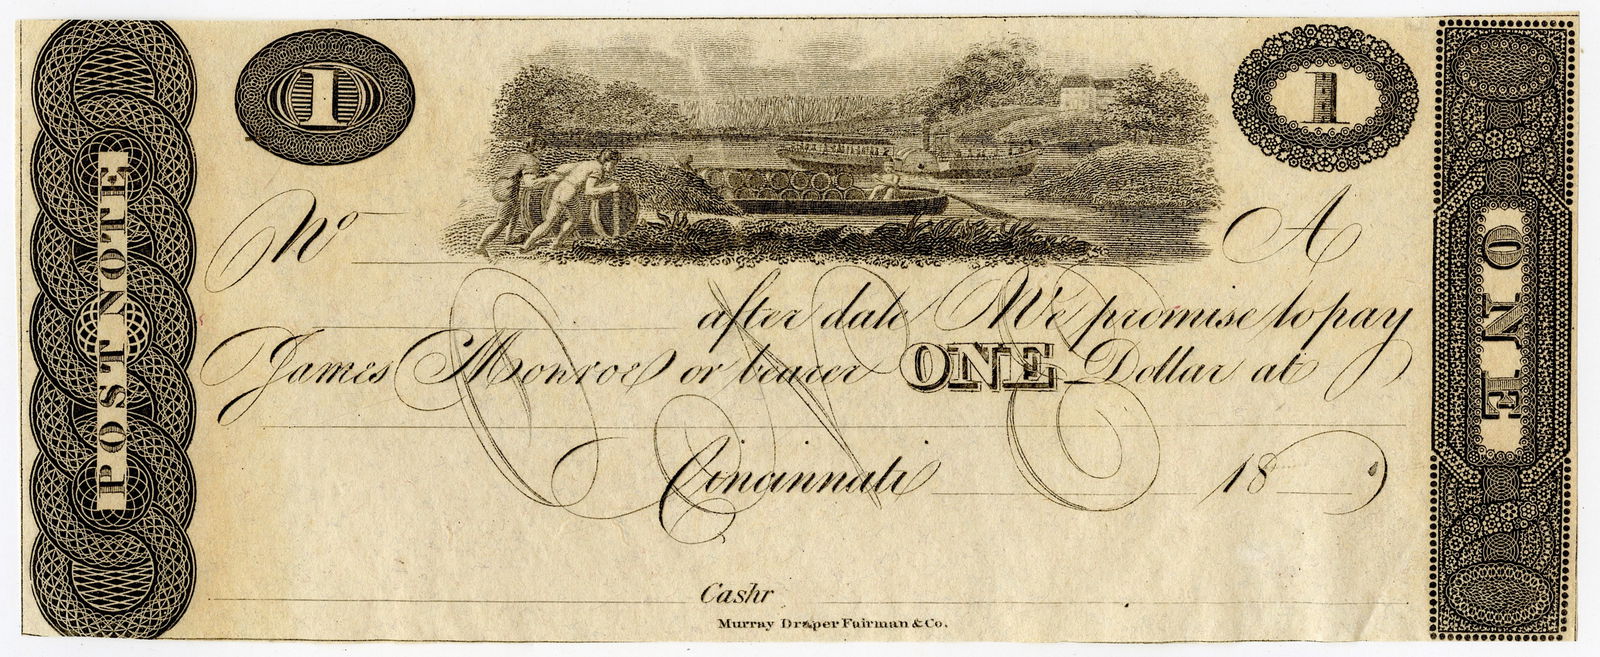 1
1
POST NOTE
No A
after date We promise to pay
James Monroe or bearer ONE Dollar at
Cincinnati 18
Cashr
Murray Draper Fairman & Co.
ONE
ONE